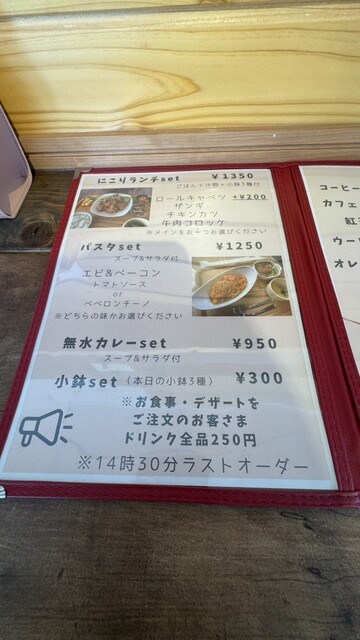 にこりランチset ¥1350
ごはん+汁物+小鉢3種付
ロールキャベツ +¥200
ザンギ
チキンカツ
牛肉コロッケ
※メインをお一つお選びください
パスタset ¥1250
スープ&サラダ付
エビ&ベーコン
トマトソース
or
ペペロンチーノ
※どちらの味かお選びください
無水カレーset ¥950
スープ&サラダ付
小鉢set (本日の小鉢3種) ¥300
※お食事・デザートを
ご注文のお客さま
ドリンク全品250円
※14時30分ラストオーダー
コーヒー
カフェ
紅
ウー
オレ